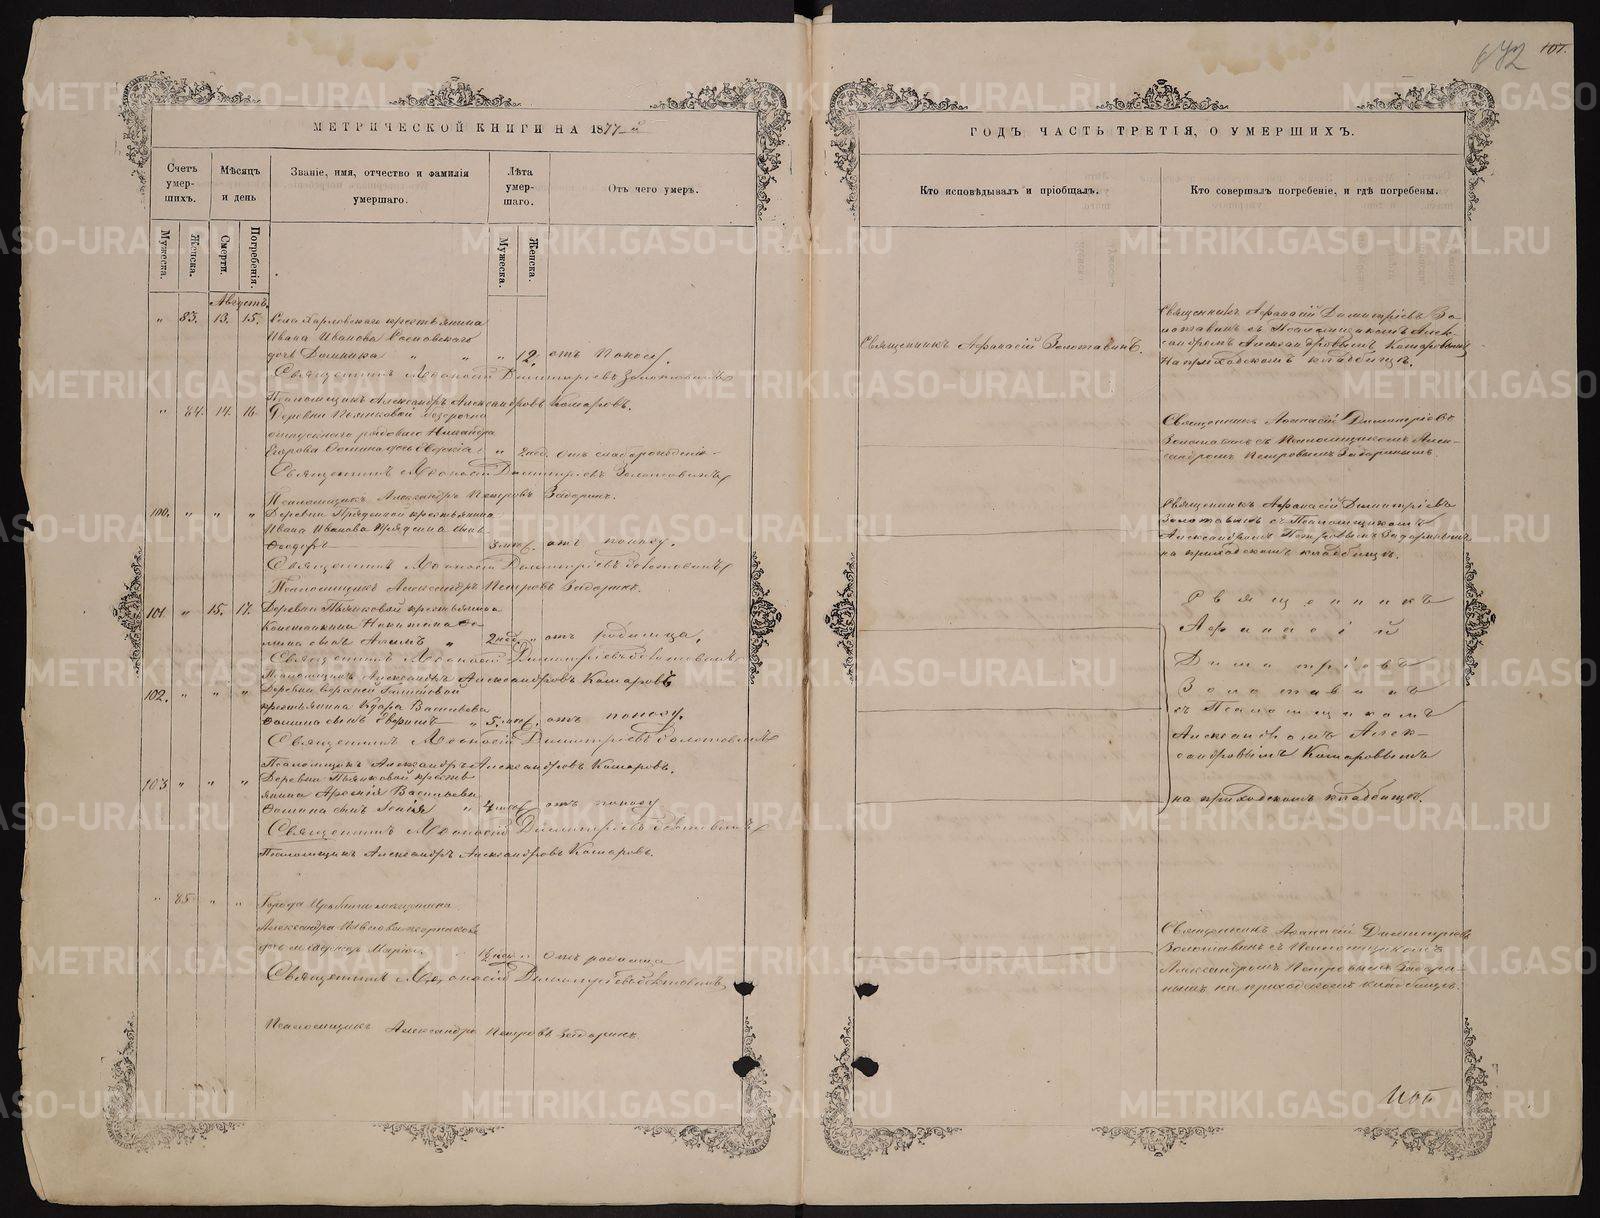 672 107.
МЕТРИЧЕСКОЙ КНИГИ НА 1877 й
Счетъ умер-шихъ.
Мѣсяцъ и день
Званіе, имя, отчество и фамилія умершаго.
Лѣта умер-шаго.
Отъ чего умеръ.
Мужеска.
Женска.
Смерти.
Погребенія.
Мужеска.
Женска.
Августъ.
" 83. 13. 15. Села Харловскаго крестьянина
Ивана Иванова Сосновскаго
дочь Домника " " " 12. отъ поносу.
Священникъ Аѳанасій Димитріевъ Золотавинъ
Псаломщикъ Александръ Александровъ Комаровъ.
" 84. 14. 16. Деревни Пьянковой безсрочно
отпускнаго рядоваго Никандра
Егорова Фомина дочь Евдокія " 2 нед. отъ слаборожденія
Священникъ Аѳанасій Димитріевъ Золотавинъ
Псаломщикъ Александръ Петровъ Задоринъ.
100. " " " Деревни Прядеиной крестьянина
Ивана Иванова Прядеина сынъ
Ѳеодоръ 3 мѣс. отъ поносу.
Священникъ Аѳанасій Димитріевъ Золотавинъ
Псаломщикъ Александръ Петровъ Задоринъ.
101. " 15. 17. Деревни Пьянковой крестьянина
Константина Никитина Фо-
мина сынъ " 2 нед. " отъ родимца.
Священникъ Аѳанасій Димитріевъ Золотавинъ
Псаломщикъ Александръ Александровъ Комаровъ
102. " " " Деревни Верхней
крестьянина Васильева
Фомина сынъ " 5. мѣс. отъ поносу.
Священникъ Аѳанасій Димитріевъ Золотавинъ
Псаломщикъ Александръ Александровъ Комаровъ.
103 " " " Деревни Пьянковой кресть-
янина Арсенія Васильева
Фомина сынъ Исаія " 4 мѣс. отъ поносу
Священникъ Аѳанасій Димитріевъ Золотавинъ
Псаломщикъ Александръ Александровъ Комаровъ.
" 85 " " Города Ирбита мещанина
Александра
дочь Марія отъ родимца
Священникъ Аѳанасій Димитріевъ Золотавинъ
Псаломщикъ Александръ Петровъ Задоринъ
ГОДЪ ЧАСТЬ ТРЕТІЯ, О УМЕРШИХЪ.
Кто исповѣдывалъ и пріобщалъ.
Кто совершалъ погребеніе, и гдѣ погребены.
Священникъ Аѳанасій Золотавинъ.
Священникъ Аѳанасій Димитріевъ Зо-
лотавинъ съ Псаломщикомъ Алек-
сандромъ Александровымъ Комаровымъ
На приходскомъ кладбищѣ.
Священникъ Аѳанасій Димитріевъ
Золотавинъ съ Псаломщикомъ Алек-
сандромъ Петровымъ Задоринымъ
Священникъ Аѳанасій Димитріевъ
Золотавинъ съ Псаломщикомъ
Александромъ Петровымъ Задоринымъ
на приходскомъ кладбищѣ.
Священникъ
Аѳанасій
Димитріевъ
Золотавинъ
съ Псаломщикомъ
Александромъ Алек-
сандровымъ Комаровымъ
на приходскомъ кладбищѣ.
Священникъ Аѳанасій Димитріевъ
Золотавинъ съ Псаломщикомъ
Александромъ Петровымъ Задори-
нымъ на приходскомъ кладбищѣ.
METRIKI.GASO-URAL.RU